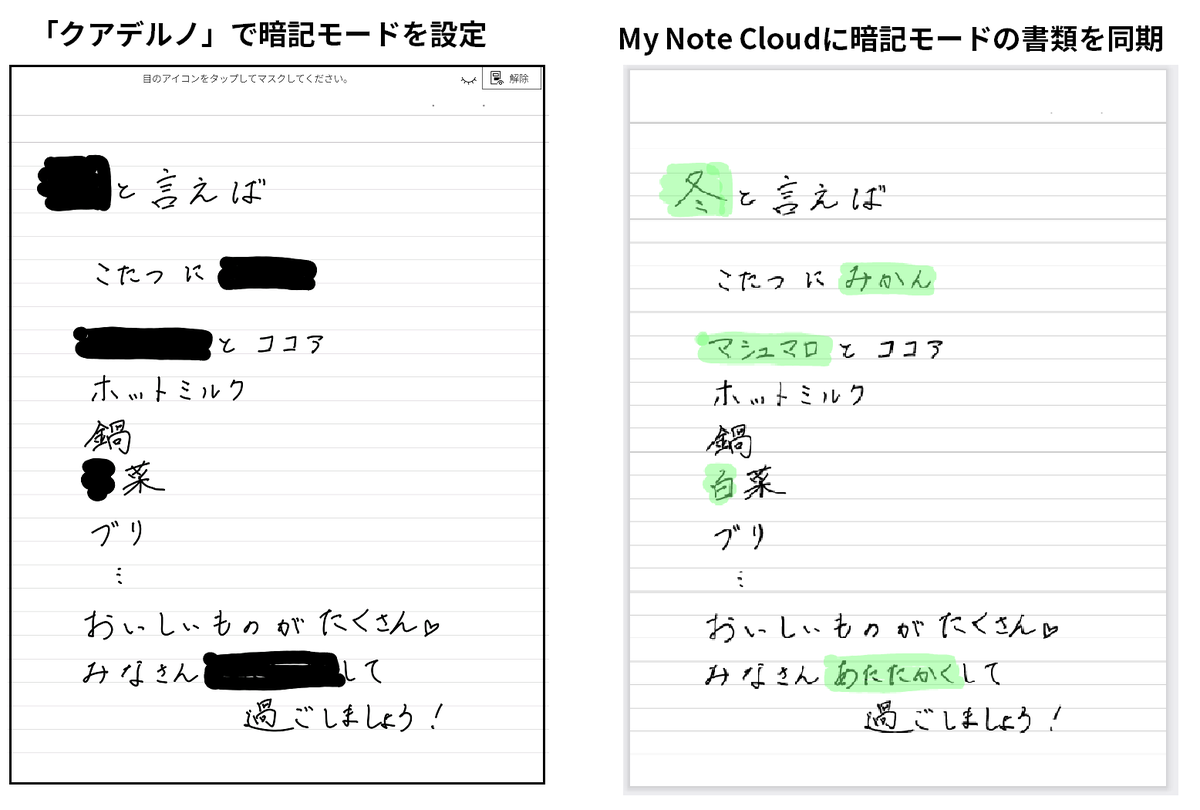 「クアデルノ」で暗記モードを設定
目のアイコンをタップしてマスクしてください。
解除
と言えば
こたつ に
と ココア
ホットミルク
鍋
菜
ブリ
⋮
おいしいものが たくさん♡
みなさん して
過ごしましょう!
My Note Cloudに暗記モードの書類を同期
冬と言えば
こたつ に みかん
マシュマロ と ココア
ホットミルク
鍋
白菜
ブリ
⋮
おいしいものが たくさん♡
みなさん あたたかくして
過ごしましょう!